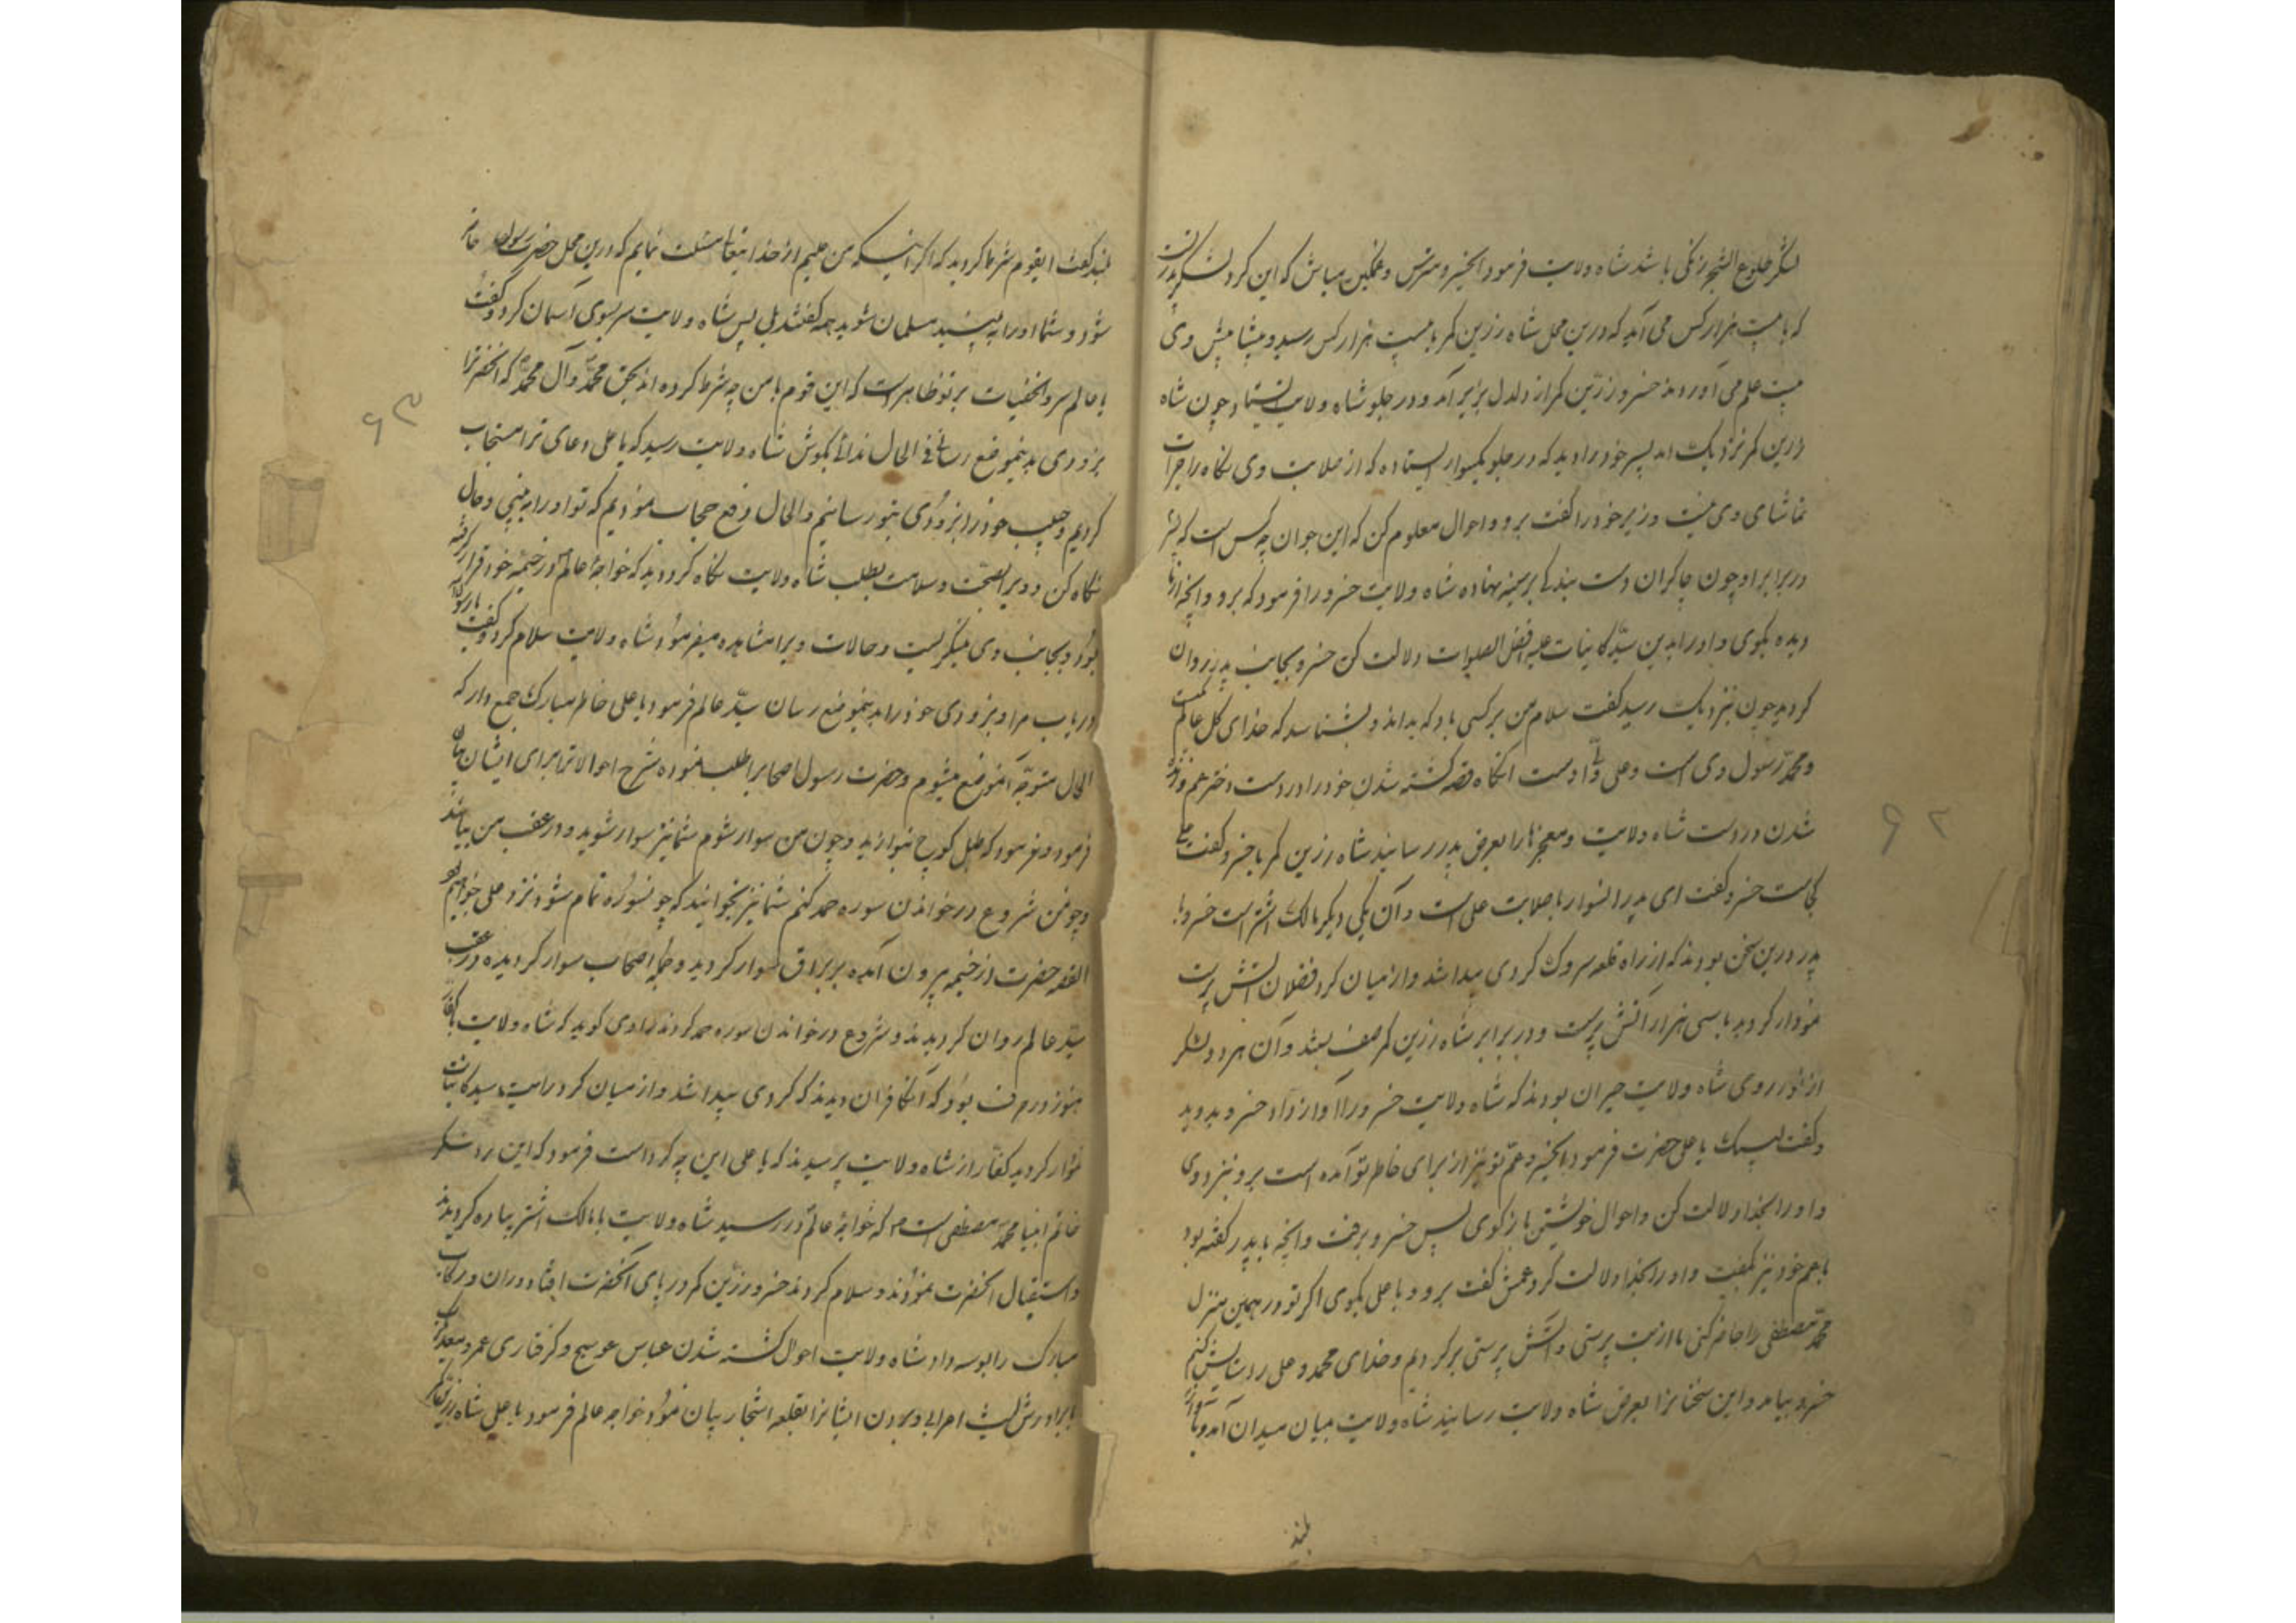 لشکر خلیع الشجر زنکی باشد شاه ولایت فرمود ای خسرو مترس و غمکین مباش که این کرد لشکر پدر تست
که با بیست هزار کس می آید که درین محل شاه زرین کمر با بیست هزار کس رسید و پیشا پیش وی
بیست علم می آوردند خسرو زرین کمر از دلدل بزیر آمد و در جلو شاه ولایت بایستاد چون شاه
زرین کمر نزدیک آمد پسر خود را دید که در جلو یکسوار ایستاده که از صلابت وی نکاه را جرات
تماشای وی نیست وزیر خود را کفت برو و احوال معلوم کن که این جوان چه کس است که پسر
در برابر او چون چاکران دست بندکی بر سینه نهاده شاه ولایت خسرو را فرمود که برو و آنچه از ما
دیده بکوی و او را بدین سید کاینات علیه افضل الصلوات دلالت کن خسرو بجانب پدر روان
کردید چون بنزدیک رسید کفت سلام من بر کسی باد که بداند و بشناسد که خدای کل عالم یکیست
و محمد رسول وی است و علی ولی اوست آنکاه قصه کشته شدن خود را در دست دختر عم و زنده
شدن در دست شاه ولایت و معجزها را بعرض پدر رسانید شاه زرین کمر با خسرو کفت علی
کجاست خسرو کفت ای پدر آنسوار با صلابت علی است و آن یکی دیکر مالک اشتر است خسرو با
پدر درین سخن بودند که از راه قلعه سروک کردی پیدا شد و از میان کرد فضلان آتش پرست
نمودار کردید با سی هزار آتش پرست و در برابر شاه زرین کمر صف بستند و آن هر دو لشکر
از نور روی شاه ولایت حیران بودند که شاه ولایت خسرو را آواز داد خسرو بدوید
و کفت لبیک یا علی حضرت فرمود ای خسرو عم تو نیز از برای خاطر تو آمده است برو بنزد وی
و او را بخدا دلالت کن و احوال خویشتن باز کوی پس خسرو برفت و آنچه با پدر کفته بود
با عم خود نیز بکفت و او را بخدا دلالت کرد عمش کفت برو و با علی بکوی اکر تو در همین منزل
محمد مصطفی را حاضر کنی ما از بت پرستی و آتش پرستی برکردیم و خدای محمد و علی را ستایش کنیم
خسرو بیامد و این سخنانرا بعرض شاه ولایت رسانید شاه ولایت میان میدان آمد و باواز
بلند
۶۲
بلند کفت ای قوم شرط کردید که اکر اینکه من علیم از خدا یتعالی مسئلت نمایم که درین محل حضرت رسول حاضر
شود و شما او را به بینید مسلمان شوید همه کفتند بلی پس شاه ولایت سر بسوی آسمان کرد و کفت
یا عالم سر والخفیات بر تو ظاهر است که این قوم با من چه شرط کرده اند بحق محمد و آل محمد که آنحضرترا
بزودی بدینموضع رسانی فی الحال ندائی بکوش شاه ولایت رسید که یا علی دعای ترا مستجاب
کردیم و حبیب خود را بزودی بتو رسانیم والحال رفع حجاب نمودیم که تو او را به بینی و حال
نکاه کن و ویرا بصحت و سلامت بطلب شاه ولایت نکاه کرد دید که خواجهٔ عالم در خیمه خود قرار کرفته
بود و بجانب وی مینکریست و حالات ویرا مشاهده میفرمود شاه ولایت سلام کرد و کفت یا رسول الله
دریاب مرا و بزودی خود را بدینموضع رسان سید عالم فرمود یا علی خاطر مبارک جمع دار که
الحال متوجه آنموضع میشوم و حضرت رسول اصحابرا طلب نموده شرح احوالاترا برای ایشان بیان
فرمود و فرمود که طبل کوچ بنوازید و چون من سوار شوم شما نیز سوار شوید و در عقب من بیائید
و چون من شروع در خواندن سوره حمد کنم شما نیز بخوانید که چون سوره تمام شود نزد علی خواهیم بود
القصه حضرت از خیمه بیرون آمده بر براق سوار کردید و جمله اصحاب سوار کردیده در عقب
سید عالم روان کردیدند و شروع در خواندن سوره حمد کردند راوی کوید که شاه ولایت با کفار
هنوز در حرف بود که آنکافران دیدند که کردی پیدا شد و از میان کرد رایت سید کاینات
نمودار کردید کفار از شاه ولایت پرسیدند که یا علی این چه کرد است فرمود که این کرد لشکر
خاتم انبیا محمد مصطفی است که خواجهٔ عالم در رسید شاه ولایت با مالک اشتر پیاده کردیدند
و استقبال آنحضرت نمودند و سلام کردند خسرو زرین کمر در پای آنحضرت افتاد و ران و رکاب
مبارک را بوسه داد شاه ولایت احوال کشته شدن عباس عوسج و کرفتاری عمرو معدیکرب
با برادرش لیث اعرابی و بردن ایشانرا بقلعه اشجار بیان نمود خواجه عالم فرمود یا علی شاه زرین کمر
۶۳